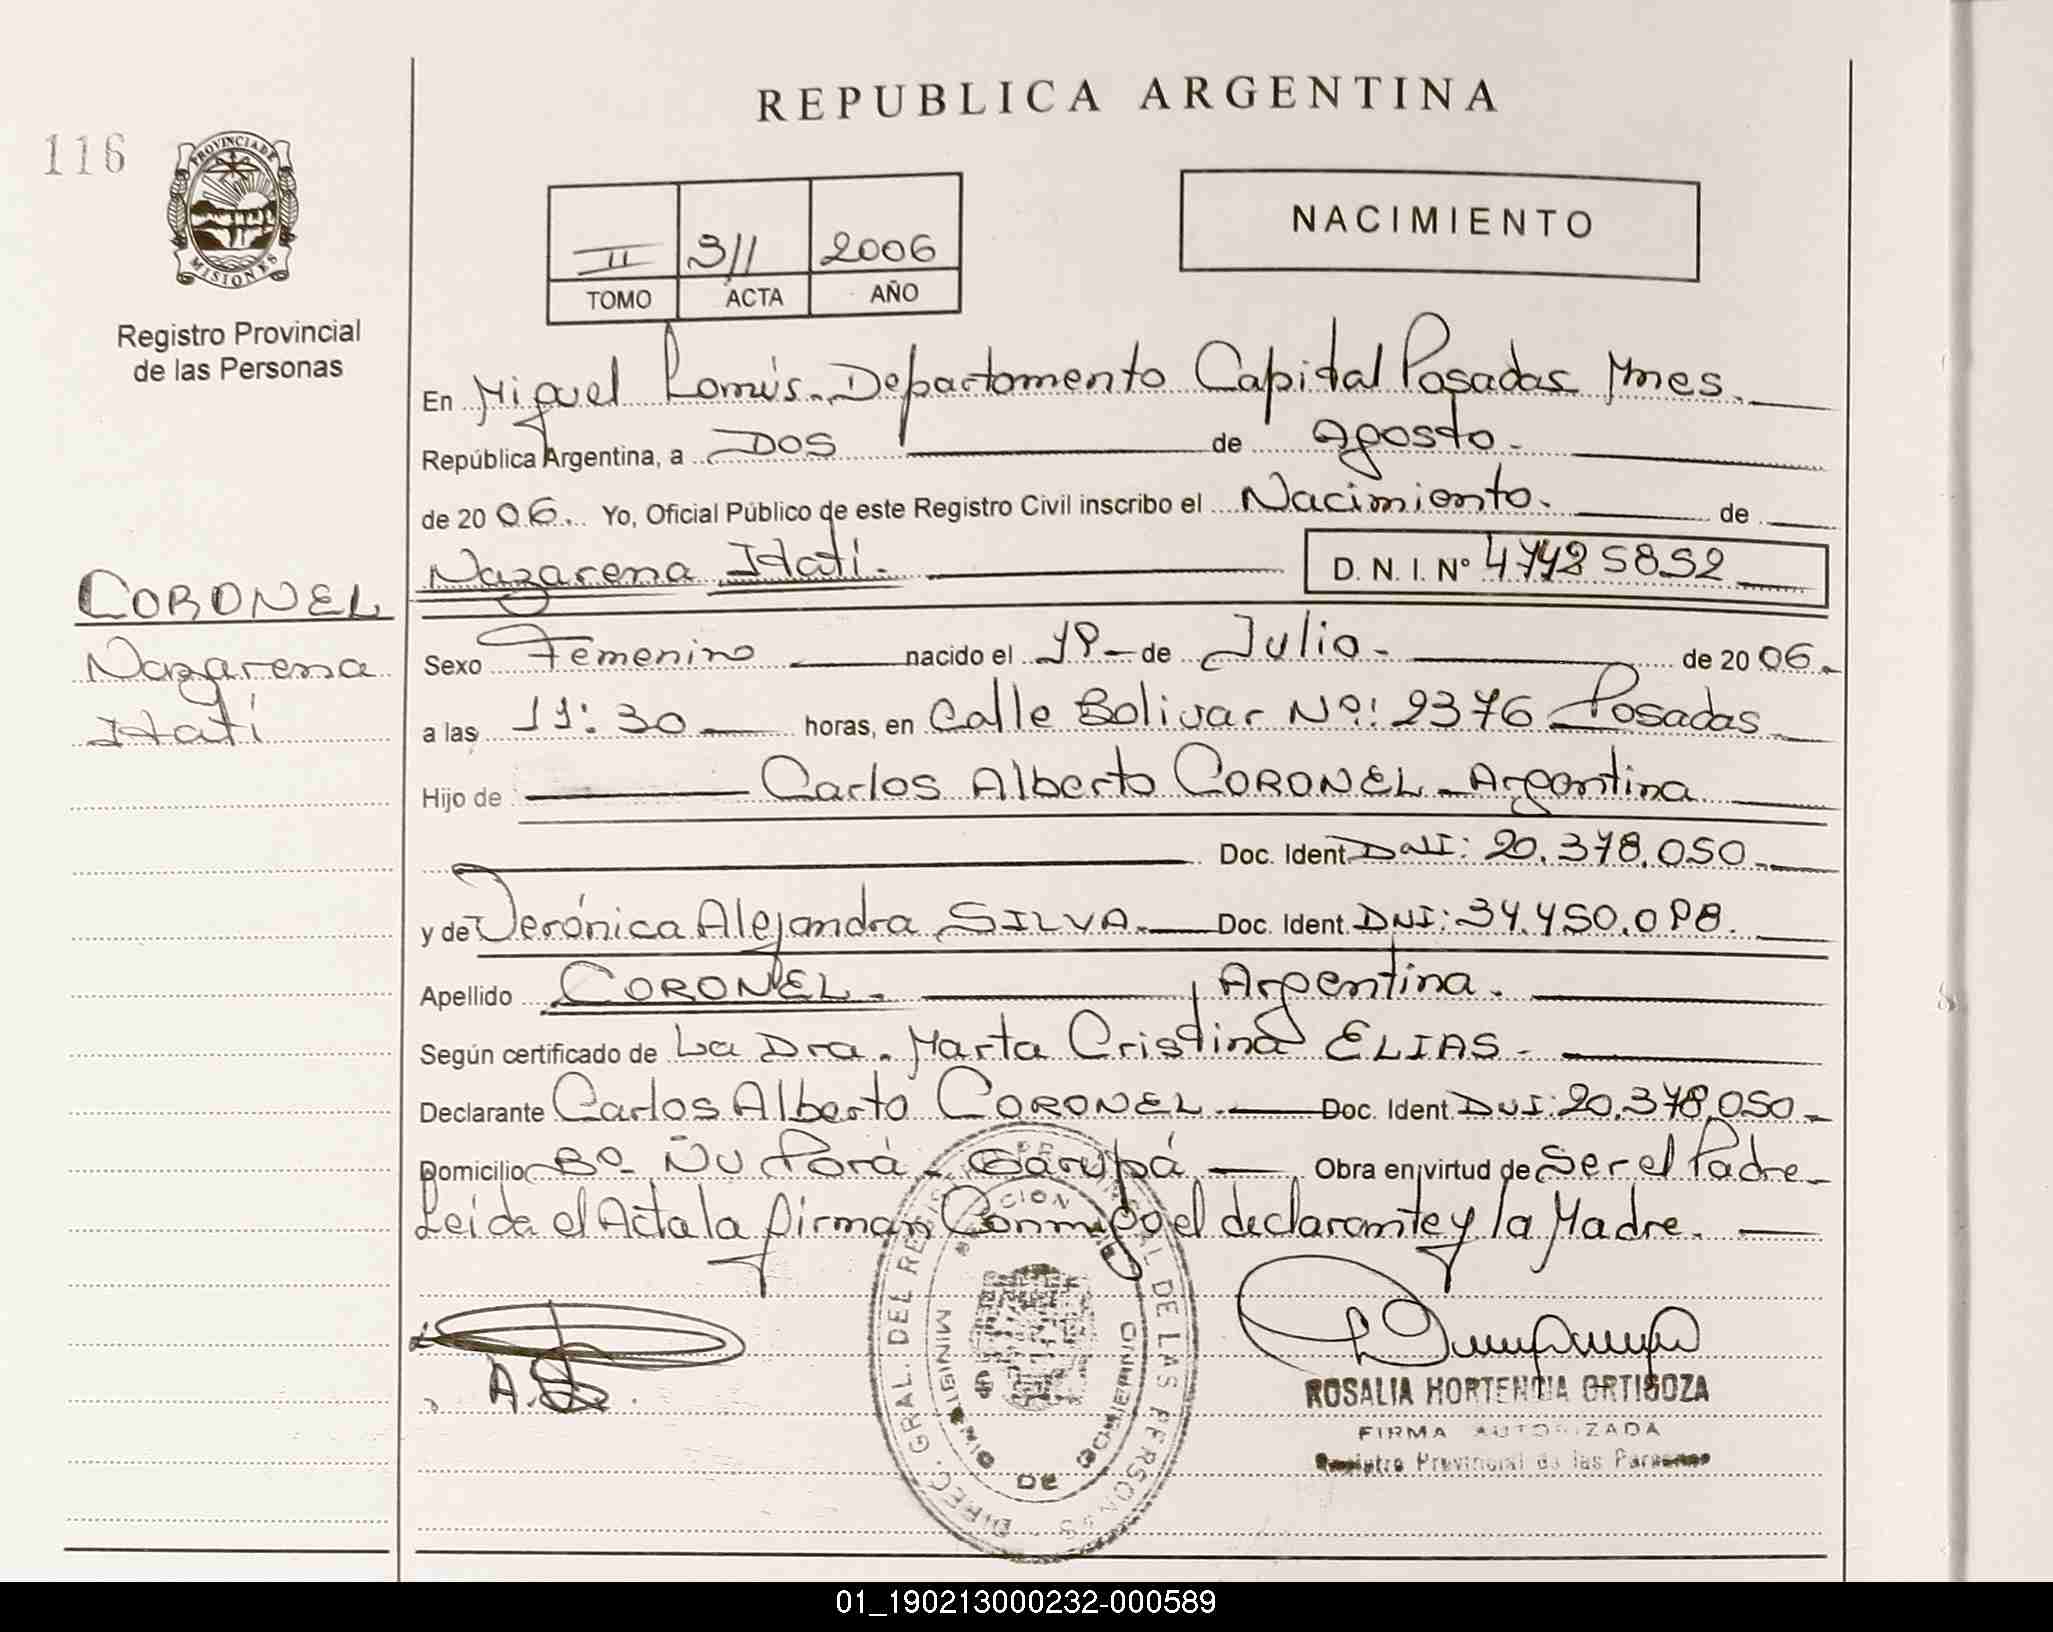 REPUBLICA ARGENTINA
116
PROVINCIA DE MISIONES
Registro Provincial
de las Personas
NACIMIENTO
II 311 2006
TOMO ACTA AÑO
En Miguel Lanús. Departamento Capital Posadas Mnes.
República Argentina, a DOS de Agosto.
de 2006. Yo, Oficial Público de este Registro Civil inscribo el Nacimiento. de
Nazarena Itatí. D. N. I. N°
CORONEL
Nazarena
Itatí
Sexo Femenino nacido el de Julio. de 2006.
a las 11:30 horas, en Calle Bolivar Nº: 2376 Posadas
Hijo de Carlos Alberto CORONEL - Argentina
Doc. Ident DNI: 20.378.050.
y de Verónica Alejandra SILVA. Doc. Ident. DNI: 34.450.098.
Apellido CORONEL. Argentina.
Según certificado de La Dra. Marta Cristina ELIAS.
Declarante Carlos Alberto CORONEL. Doc. Ident. DNI: 20.378.050
Domicilio Bº Ñu Porá - Garupá Obra en virtud de Ser el Padre
Leida el Acta la firman Conmigo el declarante y la Madre.
DIREC. GRAL. DEL REGISTRO PROVINCIAL DE LAS PERSONAS
MINISTERIO DE GOBIERNO
ROSALIA HORTENCIA ORTIGOZA
FIRMA AUTORIZADA
Registro Provincial de las Personas
01_190213000232-000589